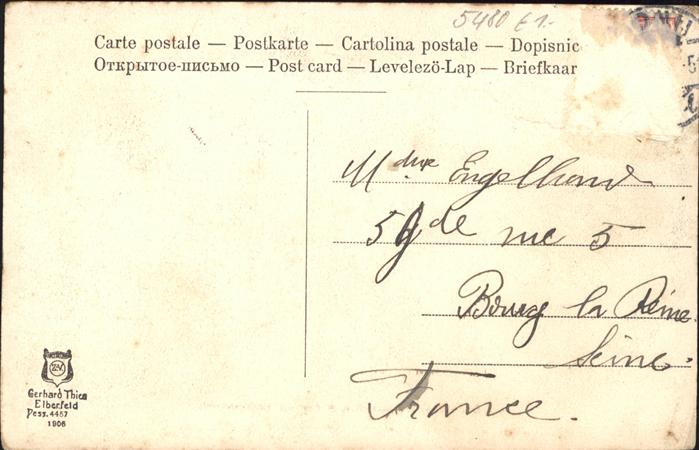 5480 £1-
Carte postale — Postkarte — Cartolina postale — Dopisnic
Открытое-письмо — Post card — Levelező-Lap — Briefkaar
Mdme Engelhard
59 gde rue 5
Bourg la Reine.
Seine.
France.
Gerhard Thien
Elberfeld
Dess. 4457
1906